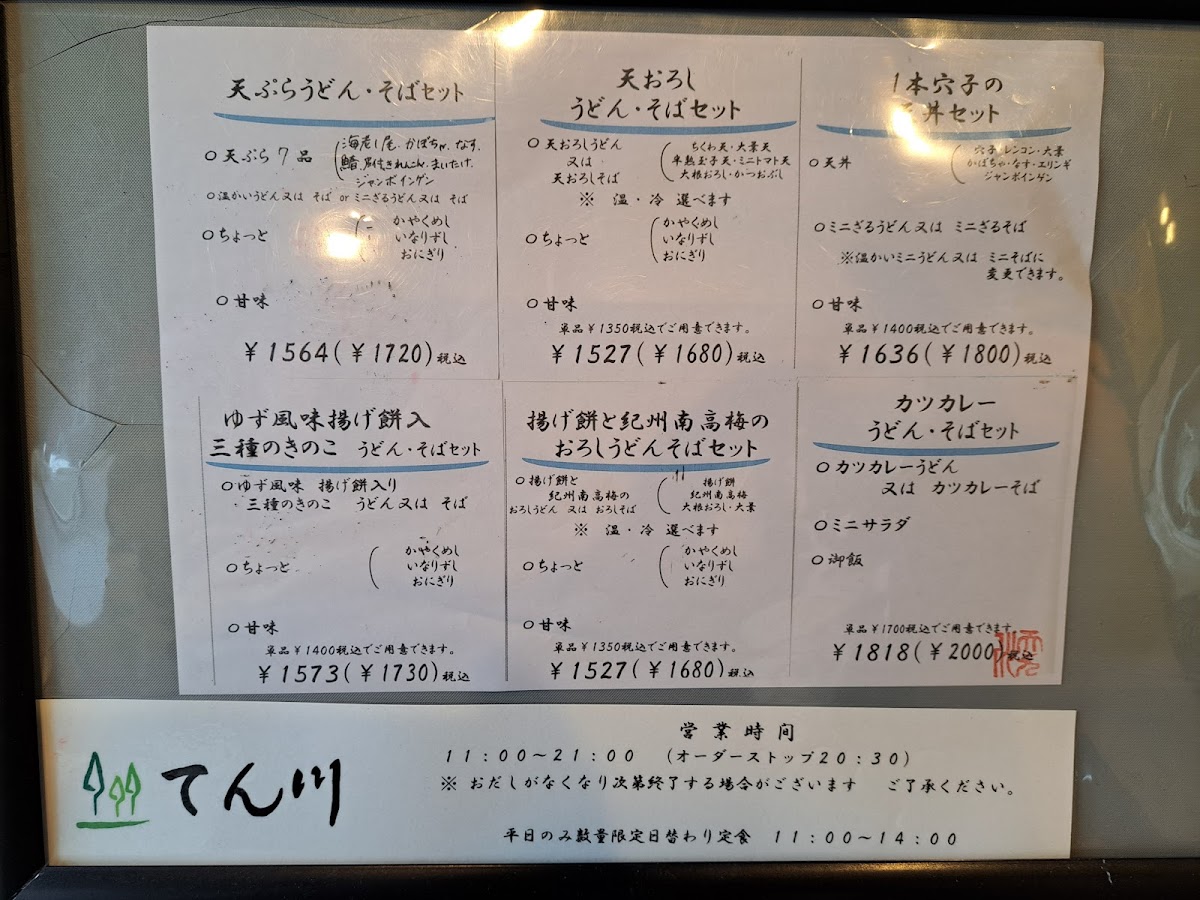 天ぷらうどん・そばセット
○天ぷら7品
海老1尾・かぼちゃ・なす・
れんこん・まいたけ・
ジャンボインゲン
○温かいうどん又は そば orミニざるうどん又は そば
○ちょっと
かやくめし
いなりずし
おにぎり
○甘味
¥1564(¥1720)税込
天おろし
うどん・そばセット
○天おろしうどん
又は
天おろしそば
ちくわ天・大葉天
半熟玉子天・ミニトマト天
大根おろし・かつおぶし
※ 温・冷 選べます
○ちょっと
かやくめし
いなりずし
おにぎり
○甘味
単品¥1350税込でご用意できます。
¥1527(¥1680)税込
1本穴子の
天丼セット
○天丼
穴子・レンコン・大葉
かぼちゃ・なす・エリンギ
ジャンボインゲン
○ミニざるうどん又は ミニざるそば
※温かいミニうどん又は ミニそばに
変更できます。
○甘味
単品¥1400税込でご用意できます。
¥1636(¥1800)税込
ゆず風味揚げ餅入
三種のきのこ うどん・そばセット
○ゆず風味 揚げ餅入り
三種のきのこ うどん又は そば
○ちょっと
かやくめし
いなりずし
おにぎり
○甘味
単品¥1400税込でご用意できます。
¥1573(¥1730)税込
揚げ餅と紀州南高梅の
おろしうどんそばセット
○揚げ餅と
紀州南高梅の
おろしうどん 又は おろしそば
揚げ餅
紀州南高梅
大根おろし・大葉
※ 温・冷 選べます
○ちょっと
かやくめし
いなりずし
おにぎり
○甘味
単品¥1350税込でご用意できます。
¥1527(¥1680)税込
カツカレー
うどん・そばセット
○カツカレーうどん
又は カツカレーそば
○ミニサラダ
○御飯
単品¥1700税込でご用意できます
¥1818(¥2000)税込
てん川
営業時間
11:00～21:00 (オーダーストップ20:30)
※ おだしがなくなり次第終了する場合がございます ご了承ください。
平日のみ数量限定日替わり定食 11:00～14:00